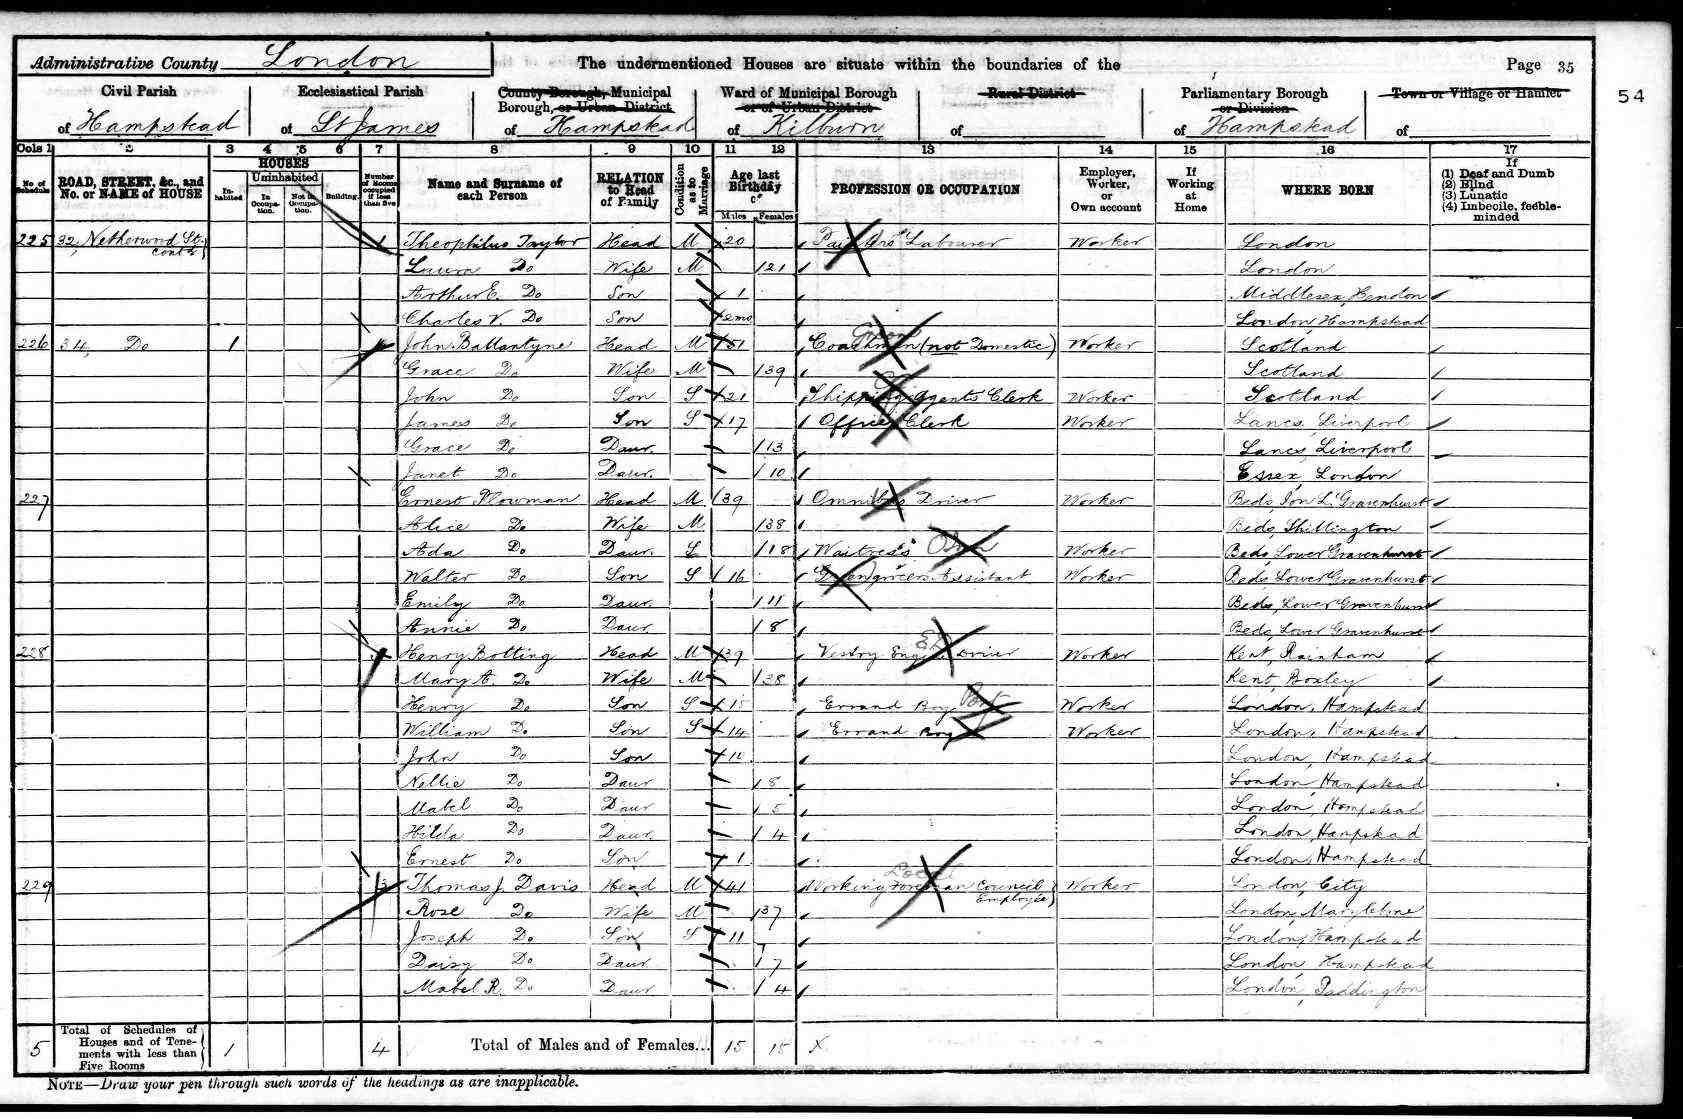 Administrative County London The undermentioned Houses are situate within the boundaries of the Page 35
54
Civil Parish of Hampstead
Ecclesiastical Parish of St James
County Borough, Municipal Borough, or Urban District of Hampstead
Ward of Municipal Borough or of Urban District of Kilburn
Rural District of
Parliamentary Borough or Division of Hampstead
Town or Village or Hamlet of
Cols 1 2 3 4 5 6 7 8 9 10 11 12 13 14 15 16 17
No. of Schedule
ROAD, STREET, &c., and No. or NAME of HOUSE
HOUSES
Inhabited
Uninhabited
In Occupation.
Not in Occupation.
Building.
Number of Rooms occupied if less than five
Name and Surname of each Person
RELATION to Head of Family
Condition as to Marriage
Age last Birthday of
Males Females
PROFESSION OR OCCUPATION
Employer, Worker, or Own account
If Working at Home
WHERE BORN
If
(1) Deaf and Dumb
(2) Blind
(3) Lunatic
(4) Imbecile, feeble-minded
225 32, Netherwood St. contd 1 Theophilus Taylor Head M 20 Labourer Worker London
Laura Do Wife M 21 London
Arthur E. Do Son 1 Middlesex, Hendon
Charles V. Do Son 2mo London, Hampstead
226 34, Do 1 John Ballantyne Head M 51 Coachman (not Domestic) Worker Scotland
Grace Do Wife M 39 Scotland
John Do Son S 21 Shipping Agents Clerk Worker Scotland
James Do Son S 17 Office Clerk Worker Lancs, Liverpool
Grace Do Daur. 13 Lancs, Liverpool
Janet Do Daur. 10 Essex, London
227 Ernest Plowman Head M 39 Omnibus Driver Worker Beds, Gravenhurst
Alice Do Wife M 38 Beds, Shillington
Ada Do Daur. S 18 Waitress Worker Beds, Lower Gravenhurst
Walter Do Son S 16 Greengrocers Assistant Worker Beds Lower Gravenhurst
Emily Do Daur. 11 Beds, Lower Gravenhurst
Annie Do Daur. 8 Beds, Lower Gravenhurst
228 Henry Botting Head M 39 Vestry Engine Driver Worker Kent, Rainham
Mary A. Do Wife M 38 Kent, Boxley
Henry Do Son S 15 Errand Boy Worker London, Hampstead
William Do Son S 14 Errand Boy Worker London, Hampstead
John Do Son 10 London, Hampstead
Nellie Do Daur 8 London, Hampstead
Mabel Do Daur 5 London, Hampstead
Hilda Do Daur. 4 London, Hampstead
Ernest Do Son 1 London, Hampstead
229 3 Thomas J. Davis Head M 41 Working Foreman (Council Employee) Worker London, City
Rose Do Wife M 37 London, Marylebone
Joseph Do Son S 11 London, Hampstead
Daisy Do Daur 7 London, Hampstead
Mabel R. Do Daur 4 London, Paddington
5 Total of Schedules of Houses and of Tenements with less than Five Rooms 1 4 Total of Males and of Females... 15 15 X
NOTE—Draw your pen through such words of the headings as are inapplicable.